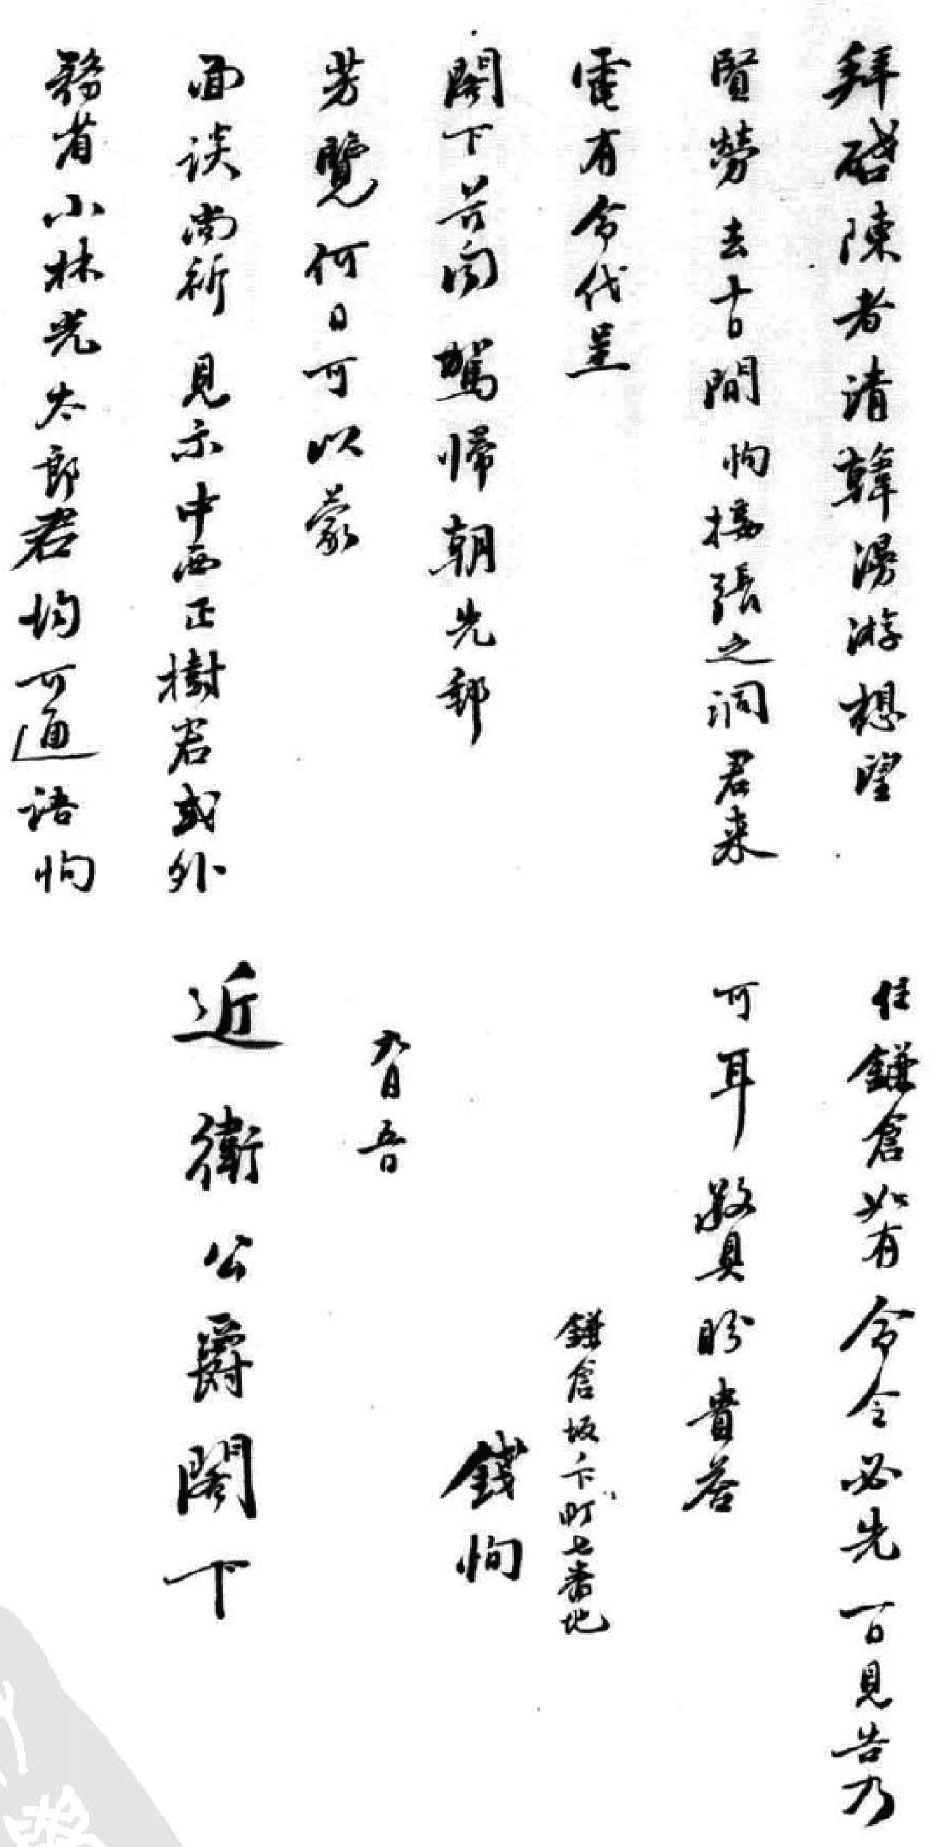 拜啓陳者清韓漫游想望
賢勞去十日間恂接張之洞君来
電有命代呈
閣下昔聞駕帰朝先郵
芳覽何日可以蒙
面談尚祈見示中西正樹君或外
務省小林光太郎君均可通語恂
住鎌倉如有命令必先一日見告乃
可耳敬具盼貴荅
鎌倉坂ノ下町七番地
錢恂
九月五日
近衛公爵閣下